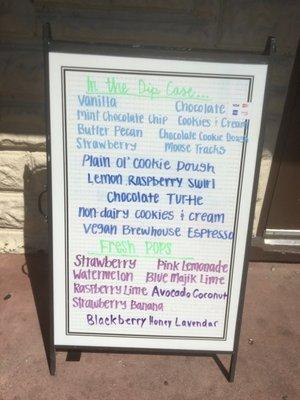 In the Dip Case...
Vanilla Chocolate
Mint Chocolate Chip Cookies & Cream
Butter Pecan Chocolate Cookie Dough
Strawberry Moose Tracks
Plain Ol' Cookie Dough
Lemon Raspberry Swirl
Chocolate Turtle
non-dairy cookies & cream
Vegan Brewhouse Espresso
Fresh Pops
Strawberry Pink Lemonade
Watermelon Blue Majik Lime
Raspberry Lime Avocado Coconut
Strawberry Banana
Blackberry Honey Lavendar